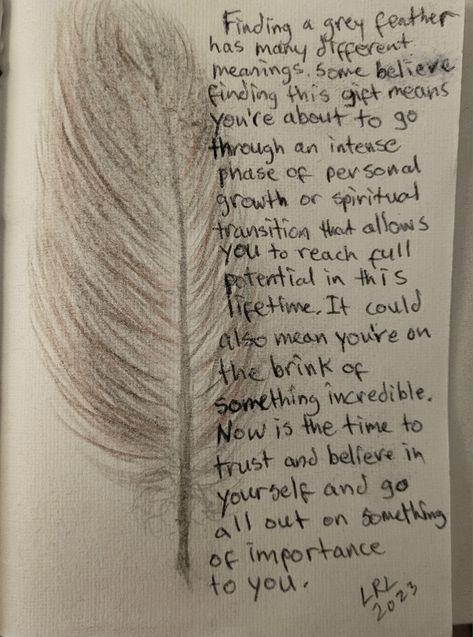 Finding a grey feather
has many different
meanings. Some believe
finding this gift means
you're about to go
through an intense
phase of personal
growth or spiritual
transition that allows
you to reach full
potential in this
lifetime. It could
also mean you're on
the brink of
something incredible.
Now is the time to
trust and believe in
yourself and go
all out on something
of importance
to you.
LRL
2023